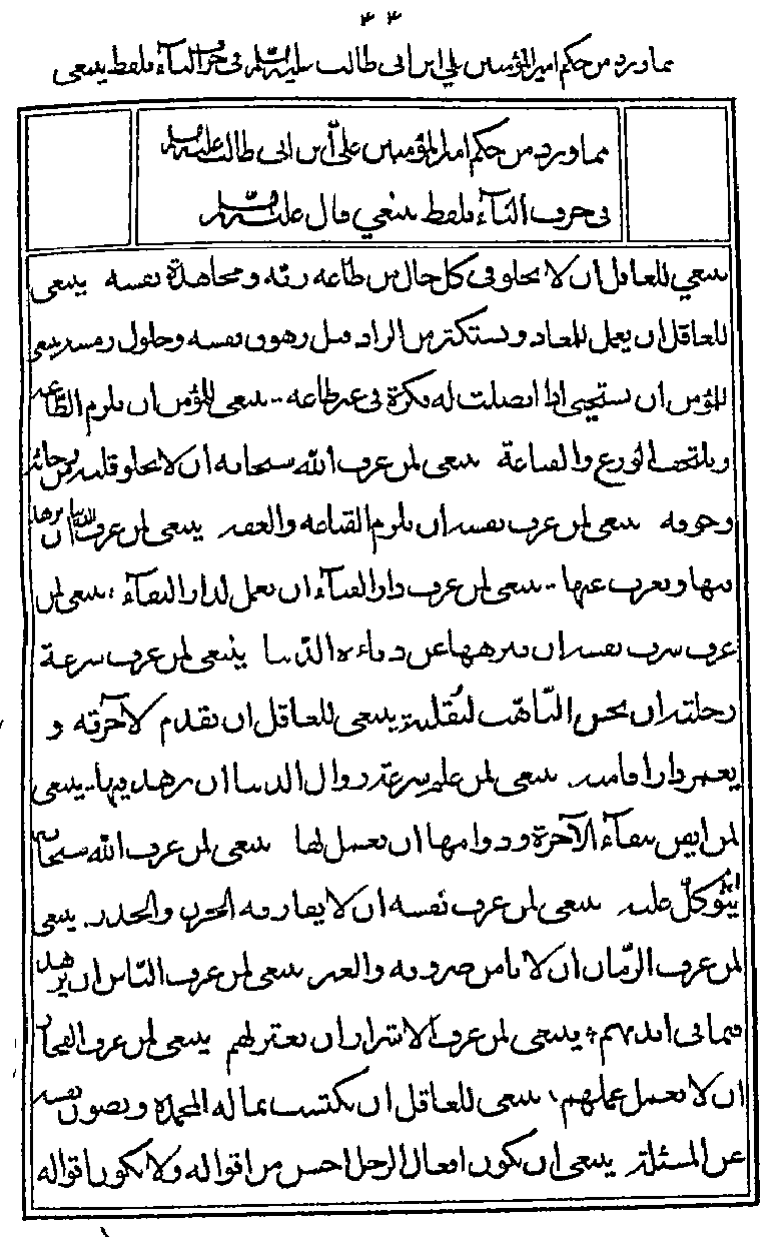 ٤٤
مما ورد من حكم امير المؤمنين علي ابن ابي طالب عليه السلم في حرف الياء بلفظ ينبغي
مما ورد من حكم امير المؤمنين علي ابن ابي طالب عليه السلم
في حرف الياء بلفظ ينبغي قال عليه السلم
ينبغي للعاقل ان لا يخلو في كل حال من طاعة ربه ومجاهدة نفسه ينبغي
للعاقل ان يعمل للمعاد ويستكثر من الزاد قبل زهوق نفسه وحلول رمسه ينبغي
للمؤمن ان يستحيي اذا اتصلت له فكرة في غير طاعة ينبغي للمؤمن ان يلزم الطاعة
ويلتحف الورع والقناعة ينبغي لمن عرف الله سبحانه ان لا يخلو قلبه من رجائه
وخوفه ينبغي لمن عرف نفسه ان يلزم القناعة والعفة ينبغي لمن عرف الدنيا ان يزهد
فيها ويعزف عنها ينبغي لمن عرف دار الفناء ان يعمل لدار البقاء ينبغي لمن
عرف شرف نفسه ان ينزهها عن دناءة الدنيا ينبغي لمن عرف سرعة
رحلته ان يحسن التأهب لنقلته ينبغي للعاقل ان يقدم لآخرته و
يعمر دار اقامته ينبغي لمن علم سرعة زوال الدنيا ان يزهد فيها ينبغي
لمن ايقن ببقاء الآخرة ودوامها ان يعمل لها ينبغي لمن عرف الله سبحانه
ان يتوكل عليه ينبغي لمن عرف نفسه ان لا يفارقه الحزن والحذر ينبغي
لمن عرف الزمان ان لا يامن صروفه والغير ينبغي لمن عرف الناس ان يزهد
فيما في ايديهم ينبغي لمن عرف الاشرار ان يعتزلهم ينبغي لمن عرف الفجار
ان لا يعمل عملهم ينبغي للعاقل ان يكتسب بماله المحمدة ويصون نفسه
عن المسئلة ينبغي ان يكون افعال الرجل احسن من اقواله ولا يكون اقواله